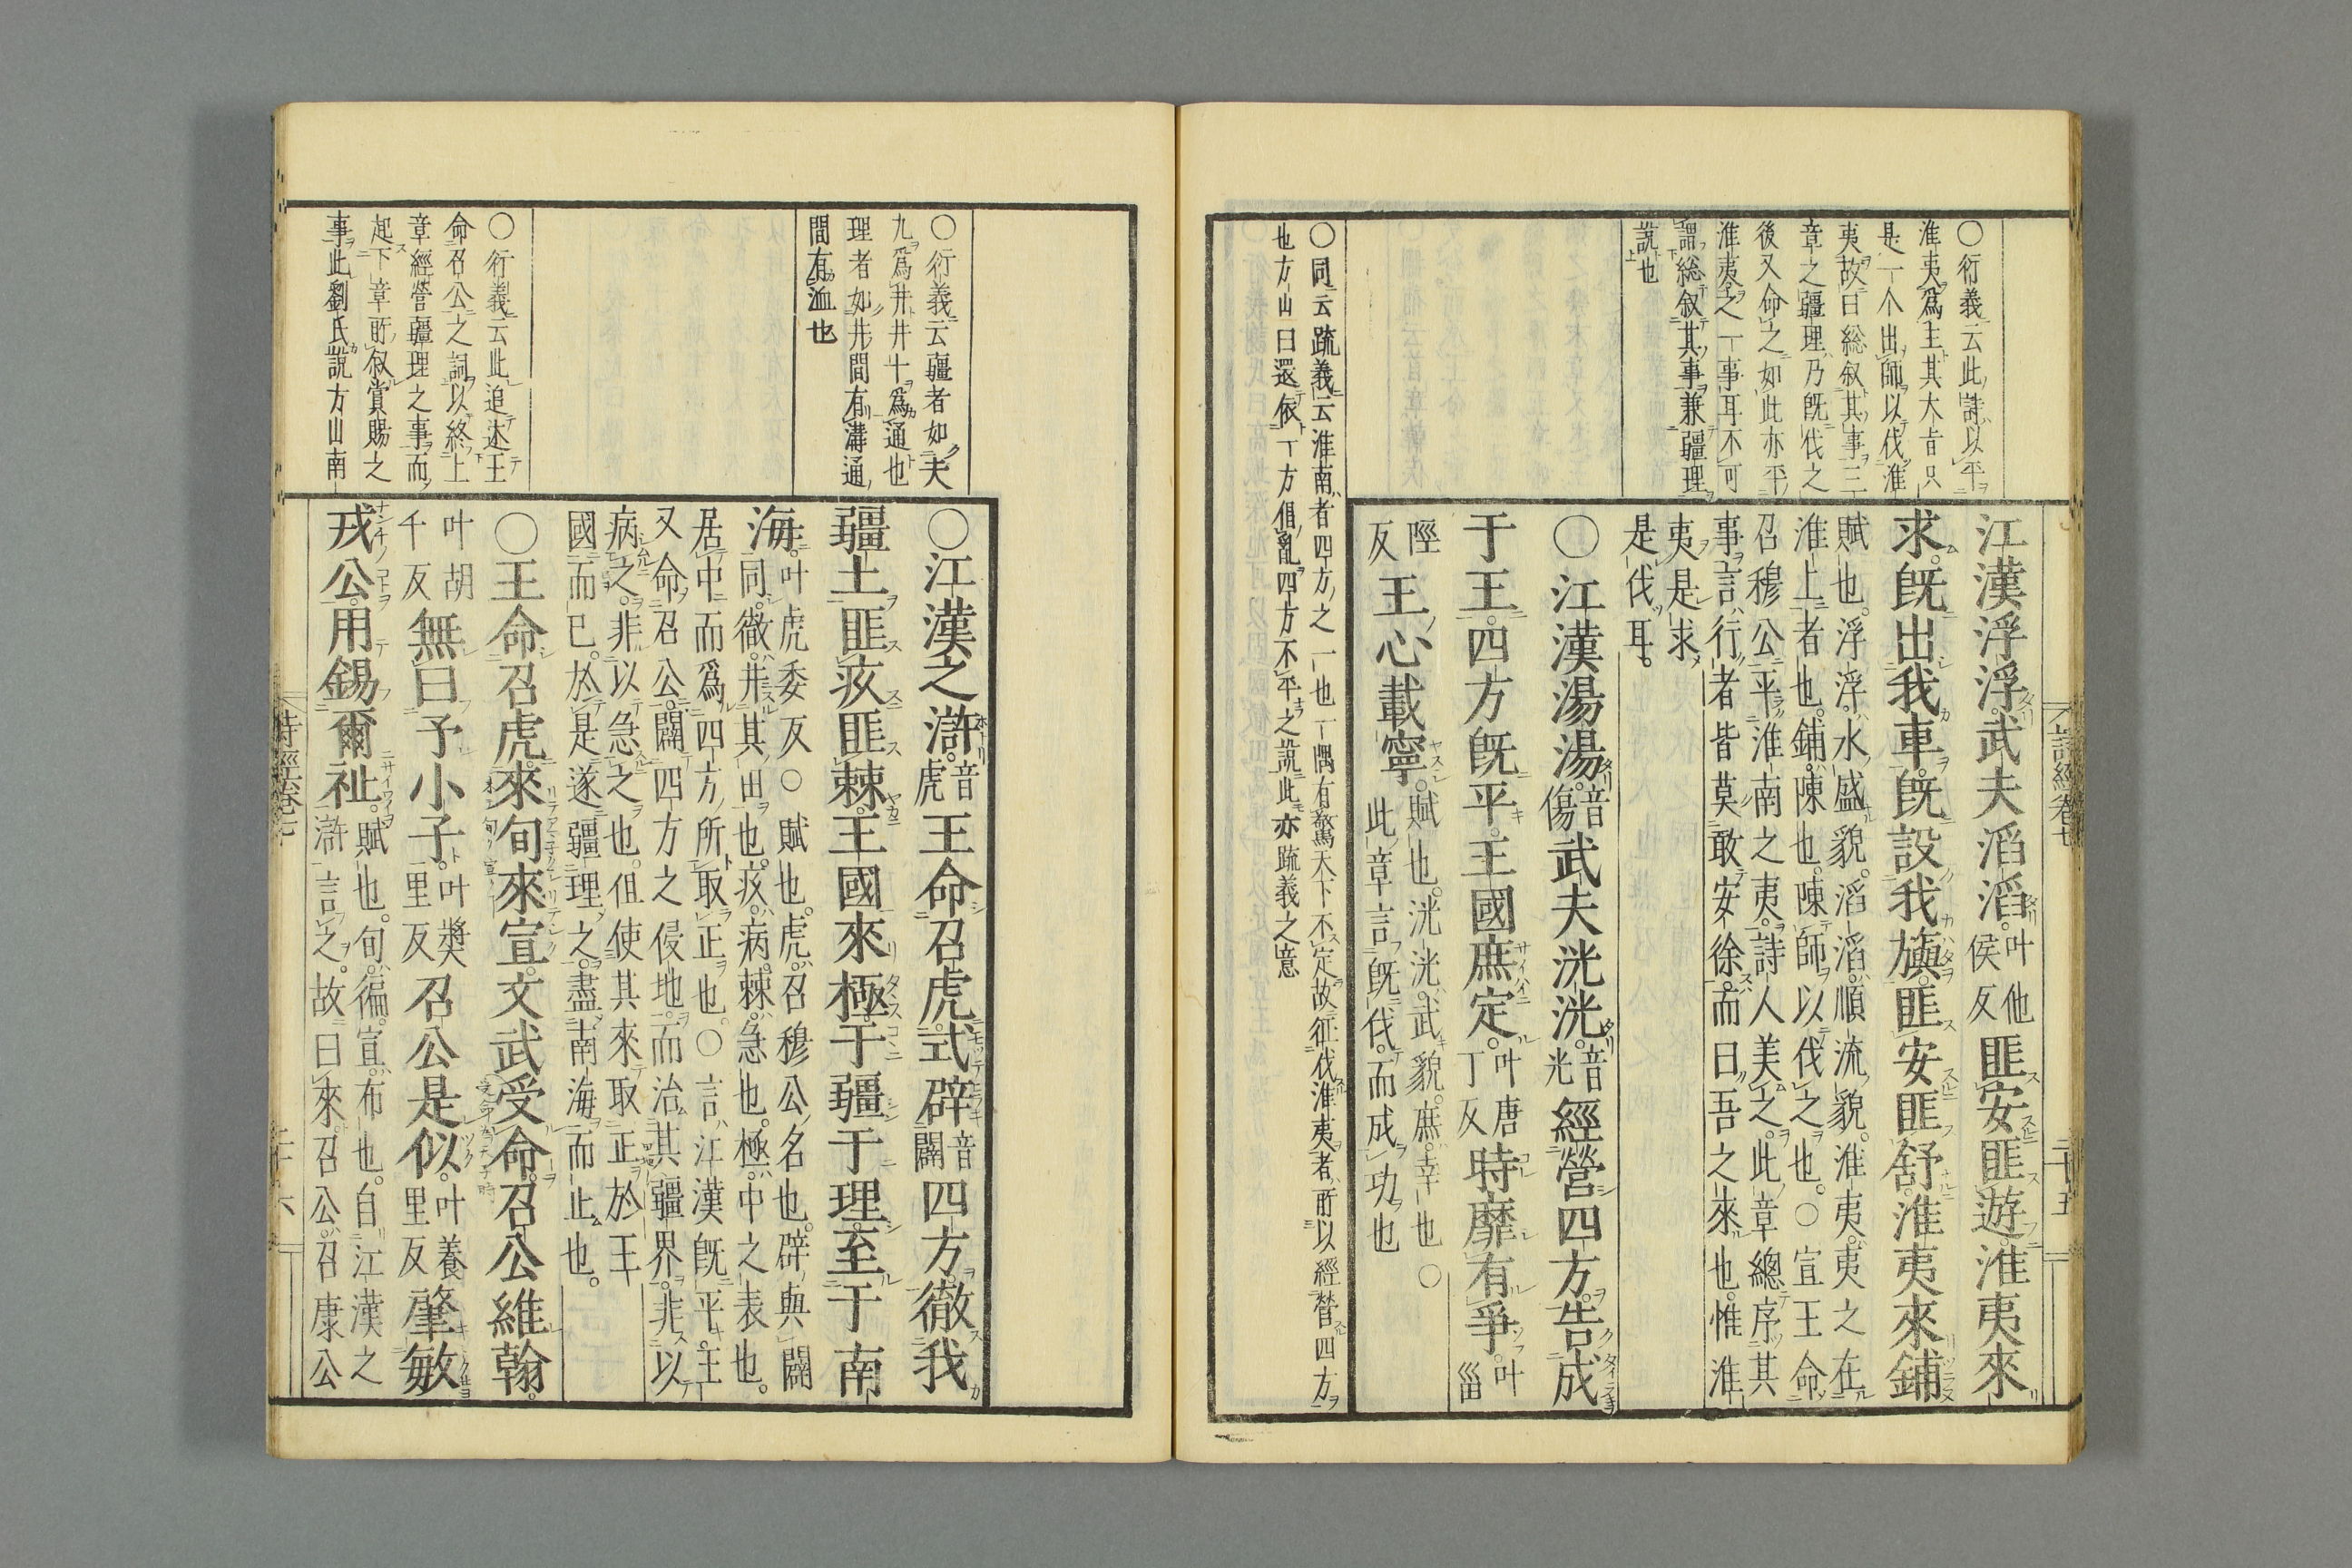 詩經卷七
二十五
○衍義云此詩以平
淮夷爲主其大旨只
是一个出師以伐淮
夷故曰総叙其事三
章之疆理乃既伐之
後又命之如此亦平
淮夷之一事耳不可
謂総叙其事兼疆理
說也
江漢浮浮武夫滔滔叶他侯反匪安匪遊淮夷來
求既出我車既設我旟匪安匪舒淮夷來鋪
賦也浮浮水盛貌滔滔順流貌淮夷夷之在
淮上者也鋪陳也陳師以伐之也○宣王命
召穆公平淮南之夷詩人美之此章總序其
事言行者皆莫敢安徐而曰吾之來也惟淮
夷是求
是伐耳
○江漢湯湯音傷武夫洸洸音光經營四方告成
于王四方既平王國庶定叶唐丁反時靡有爭叶甾
陘反王心載寧賦也洸洸武貌庶幸也○
此章言既伐而成功也
○同云疏義云淮南者四方之一也一隅有驚天下不定故征伐淮夷者所以經營四方
也方山曰還依丁方倡亂四方不平之說此亦疏義之意
○衍義云疆者如夫
九爲井井十爲通也
理者如井間有溝通
間有洫也
○衍義云此追述王
命召公之詞以終上
章經營疆理之事而
起下章所叙賞賜之
事此劉氏說方山南
○江漢之滸音虎王命召虎式辟音闢四方徹我
疆土匪疚匪棘王國來極于疆于理至于南
海叶虎委反○賦也虎召穆公名也辟與闢
同徹井其田也疚病棘急也極中之表也
居中而爲四方所取正也○言江漢既平王
又命召公闢四方之侵地而治其疆界非以
病之非以急之也但使其來取正於王
國而已於是遂疆理之盡南海而止也
○王命召虎來旬來宣文武受命召公維翰
叶胡千反無曰予小子叶獎里反召公是似叶養里反肇敏
戎公用錫爾祉賦也旬徧宣布也自江漢之
滸言之故曰來召公召康公
詩經卷七
二十六